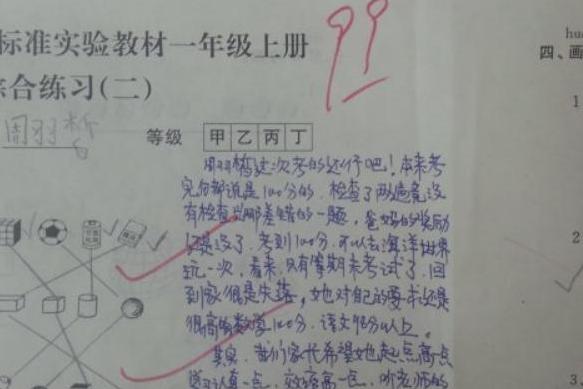 标准实验教材一年级上册
99
综合练习(二)
周羽
等级 甲 乙 丙 丁
四、画
1
2
3
这次考的还行吧!本来考
完后都说是100分的,检查了两遍竟没
有检查出那差错的一题,爸妈的奖励
还是没了,考到100分,可以去海洋世界
玩一次,看来,只有等期末考试了,回
到家很是失落,她对自己的要求还是
很高的数学100分,语文98分以上。
其实,我们家长希望她起点高点
学习认真一点,效率高一点,听老师的